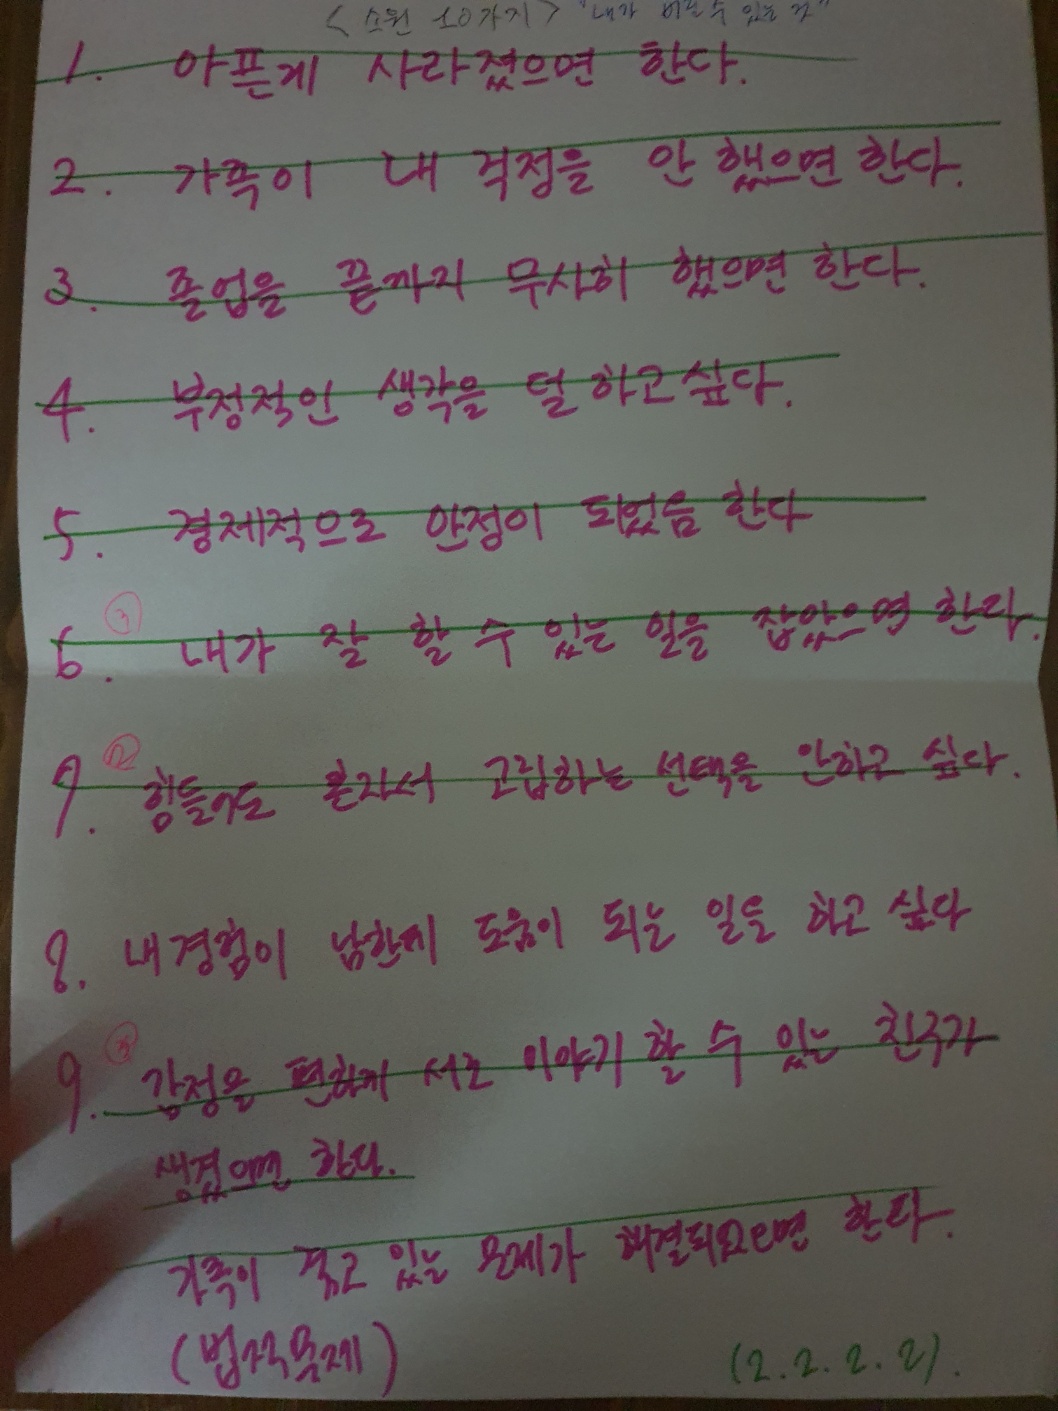 <소원 10가지> "내가 버릴 수 있는 것"
1. 아픈게 사라졌으면 한다.
2. 가족이 내 걱정을 안 했으면 한다.
3. 졸업을 끝까지 무사히 했으면 한다.
4. 부정적인 생각을 덜 하고 싶다.
5. 경제적으로 안정이 되었음 한다
③
6. 내가 잘 할 수 있는 일을 잡았으면 한다.
②
7. 힘들어도 혼자서 고립하는 선택을 안하고 싶다.
8. 내 경험이 남한테 도움이 되는 일을 하고 싶다
9. 감정을 편하게 서로 이야기 할 수 있는 친구가
생겼으면 한다.
가족이 겪고 있는 문제가 해결되었으면 한다.
(법적문제)
(2.2.2.2).